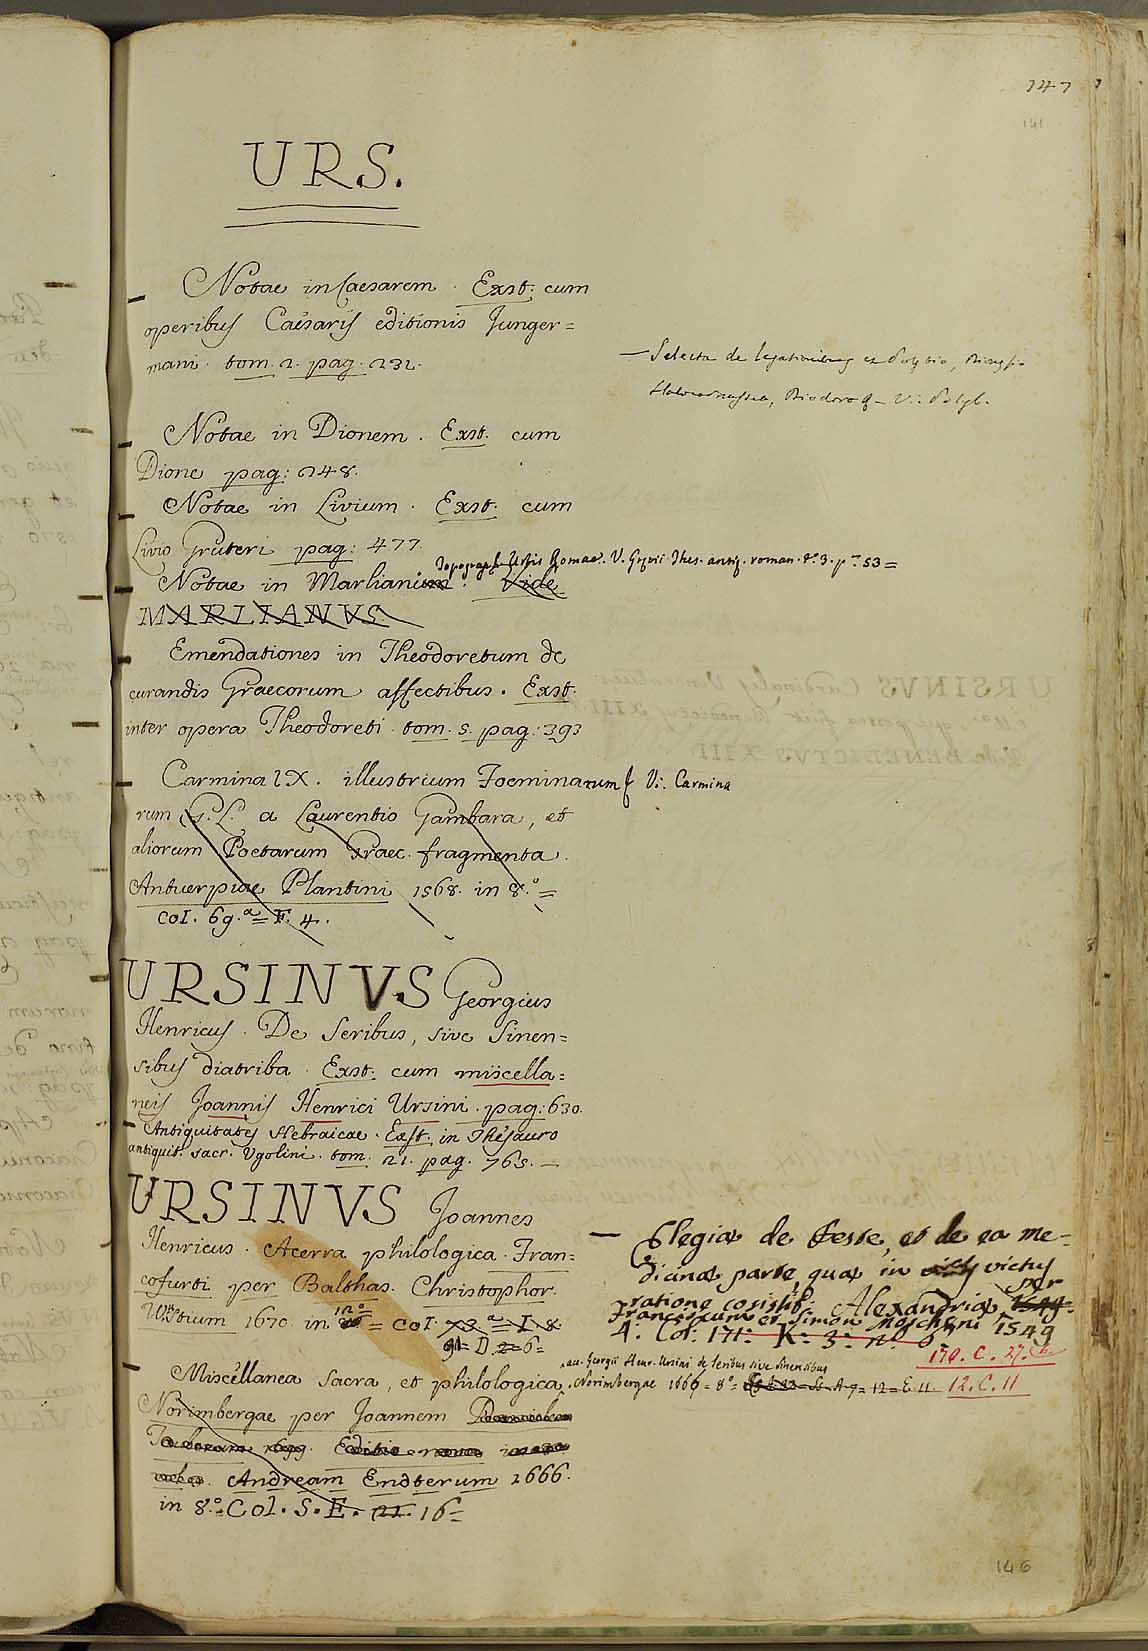 147
141
URS.
Notae in Caesarem. Exst. cum
operibus Caesaris editionis Junger=
mani. tom. 2. pag. 232.
— Selecta de legationibus ex Polybio,
Halicarnassea, Diodoro &— V: Polyb.
Notae in Dionem. Exst. cum
Dione pag: 248.
Notae in Livium. Exst. cum
Livio Gruteri pag: 477.
Topograph. Urbis Romae. V. Grevii Thes. antiq. roman. t.° 3. p.ª 53=
Notae in Marlianium. Vide
MARLIANVS.
Emendationes in Theodoretum de
curandis Graecorum affectibus. Exst.
inter opera Theodoreti. tom. 5. pag: 393
Carmina IX. illustrium Foeminarum V: Carmina
rum G. L. a Laurentio Gambara, et
aliorum Poetarum Graec. fragmenta.
Antuerpiae Plantini 1568. in 8.°=
Col. 69.ª= F. 4.
URSINVS Georgius
Henricus. De Seribus, sive Sinen=
sibus diatriba. Exst: cum miscella=
neis Joannis Henrici Ursini. pag: 630.
Antiquitates Hebraicae. Exst. in Thesauro
antiquit. sacr. Ugolini. tom. 21. pag. 763.—
URSINVS Joannes
Henricus. Acerra philologica. Fran=
cofurti per Balthas. Christophor.
Wstium 1670. in 12°= Col. 73.ª= I. 8
91= D. 2=6=
— Elegia de Peste, et de ea me=
dicinae parte, quae in victus
ratione cosistit. Alexandriae, per 1549.
Franciscum et Simon Moscheni 1549
4. Col: 171: K= 3= n.° 6=
170. C. 27.
Miscellanea sacra, et philologica, acc. Georgii Henr. Ursini de Seribus sive Sinensibus
Norimbergae 1666= 8°= A 9= 12= E. 11. 12. C. 11
Norimbergae per Joannem
Andream Endterum 1666.
in 8.°= Col. S. E. 21. 16=
146